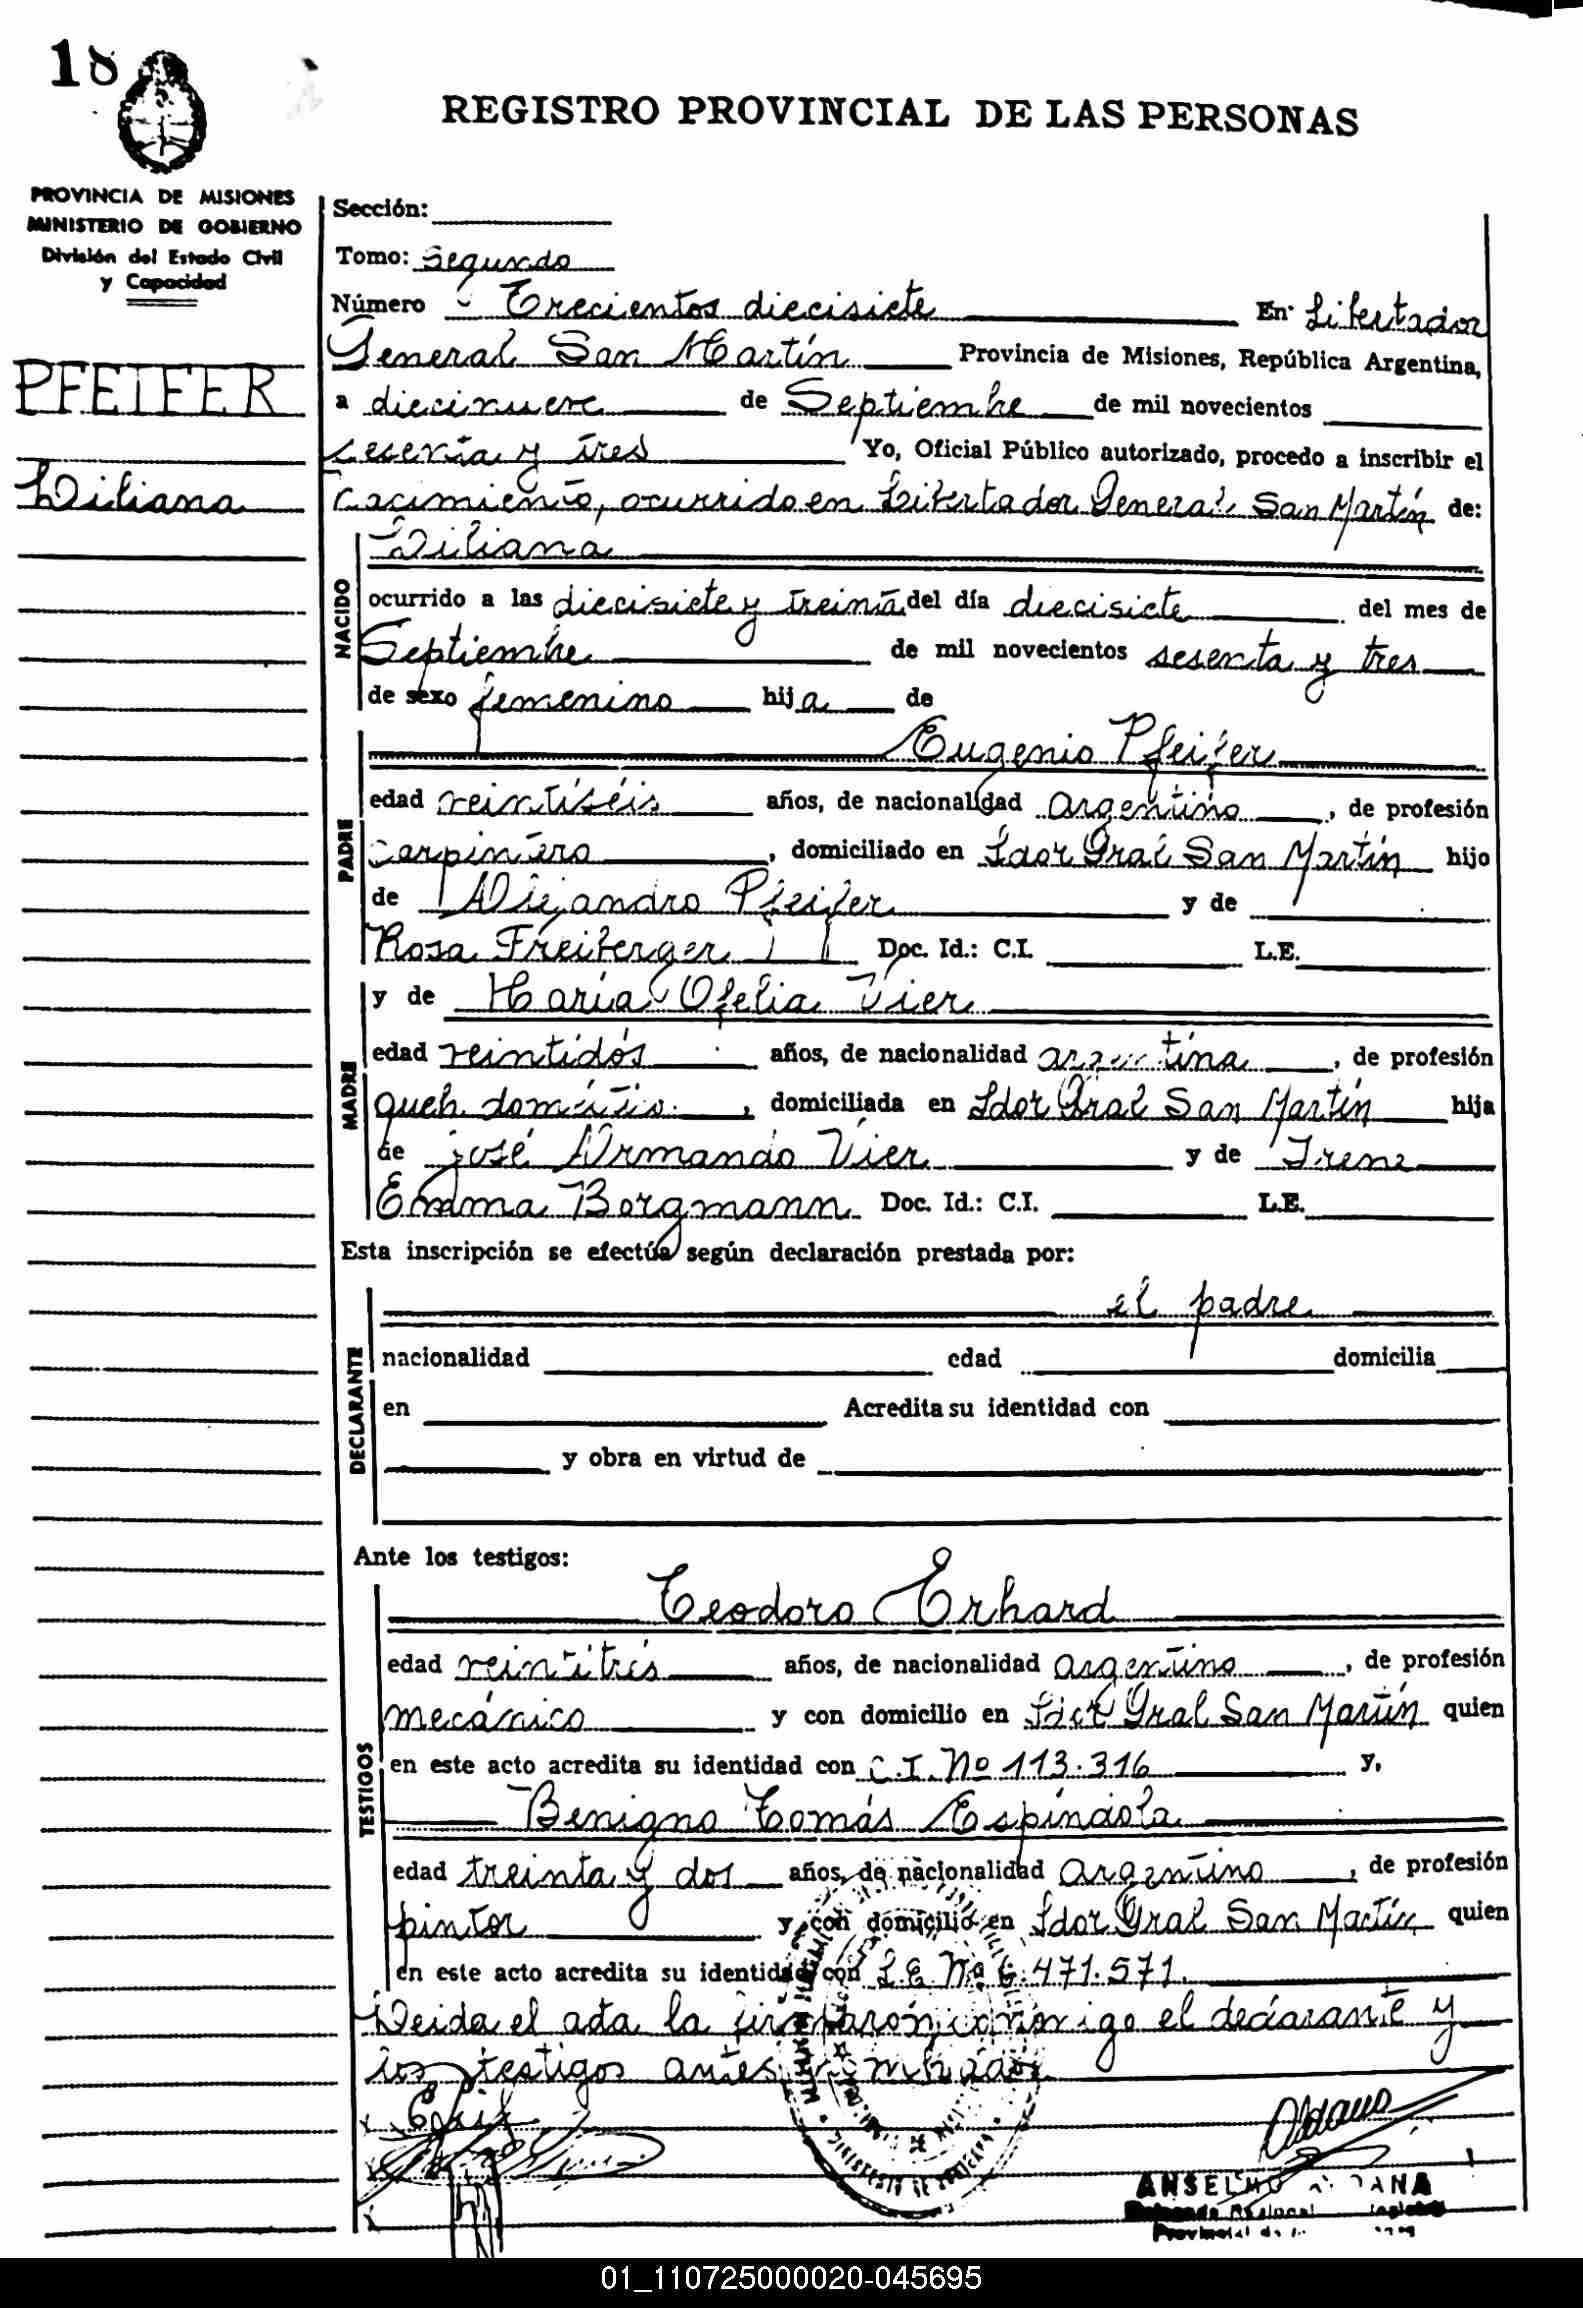 18
REGISTRO PROVINCIAL DE LAS PERSONAS
PROVINCIA DE MISIONES
MINISTERIO DE GOBIERNO
División del Estado Civil
y Capacidad
PFEIFER
Liliana
Sección:
Tomo: Segundo
Número Trecientos diecisiete En Libertador
General San Martín Provincia de Misiones, República Argentina,
a diecinueve de Septiembre de mil novecientos
sesenta y tres Yo, Oficial Público autorizado, procedo a inscribir el
nacimiento, ocurrido en Libertador General San Martín de:
NACIDO
Liliana
ocurrido a las diecisiete y treinta del día diecisiete del mes de
Septiembre de mil novecientos sesenta y tres
de sexo femenino hija de
PADRE
Eugenio Pfeifer
edad veintiséis años, de nacionalidad argentino, de profesión
carpintero, domiciliado en Ldor Gral San Martín hijo
de Alejandro Pfeifer y de
Rosa Freiberger Doc. Id.: C.I. L.E.
MADRE
y de María Ofelia Vier
edad veintidós años, de nacionalidad argentina, de profesión
queh. doméstic. , domiciliada en Ldor Gral San Martín hija
de José Armando Vier y de Irene
Emma Borgmann Doc. Id.: C.I. L.E.
Esta inscripción se efectúa según declaración prestada por:
DECLARANTE
el padre
nacionalidad edad domicilia
en Acredita su identidad con
y obra en virtud de
Ante los testigos:
TESTIGOS
Teodoro Erhard
edad veintitrés años, de nacionalidad argentino, de profesión
mecánico y con domicilio en Ldor Gral San Martín quien
en este acto acredita su identidad con C.I. Nº 113.316 y,
Benigno Tomás Espíndola
edad treinta y dos años, de nacionalidad argentino, de profesión
pintor y con domicilio en Ldor Gral San Martín quien
en este acto acredita su identidad con L.E. Nº 6.471.571.
Leida el acta la firmaron conmigo el declarante y
los testigos antes nombrados
Aldana
ANSELMO ALDANA
01_110725000020-045695